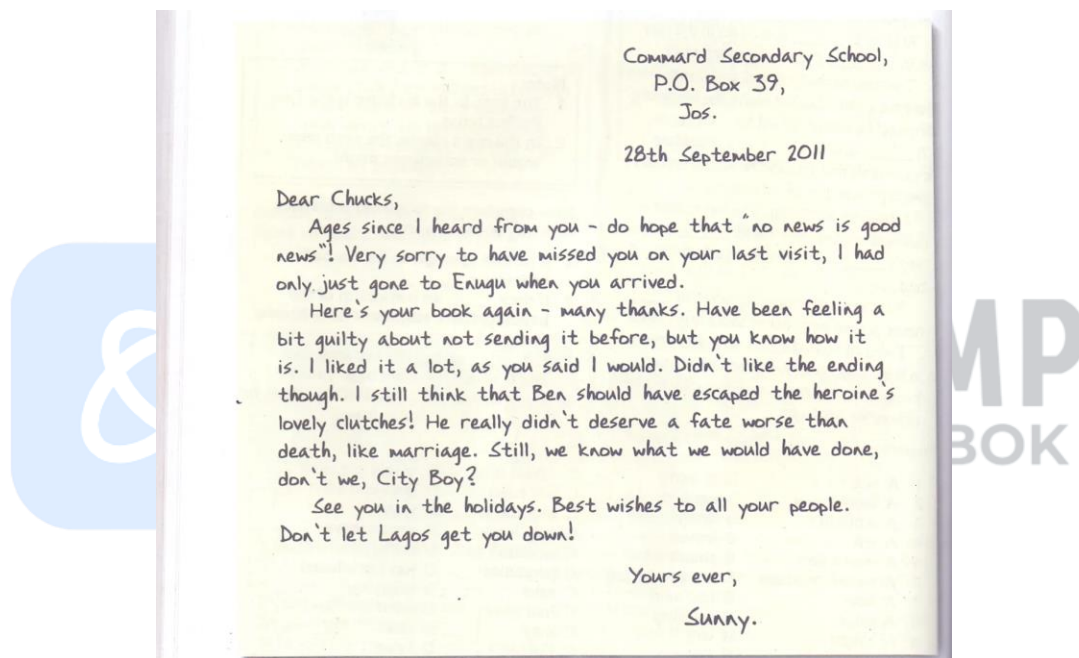 Commard Secondary School,
P.O. Box 39,
Jos.
28th September 2011
Dear Chucks,
Ages since I heard from you - do hope that "no news is good
news"! Very sorry to have missed you on your last visit, I had
only just gone to Enugu when you arrived.
Here's your book again - many thanks. Have been feeling a
bit guilty about not sending it before, but you know how it
is. I liked it a lot, as you said I would. Didn't like the ending
though. I still think that Ben should have escaped the heroine's
lovely clutches! He really didn't deserve a fate worse than
death, like marriage. Still, we know what we would have done,
don't we, City Boy?
See you in the holidays. Best wishes to all your people.
Don't let Lagos get you down!
Yours ever,
Sunny.
MP
BOK